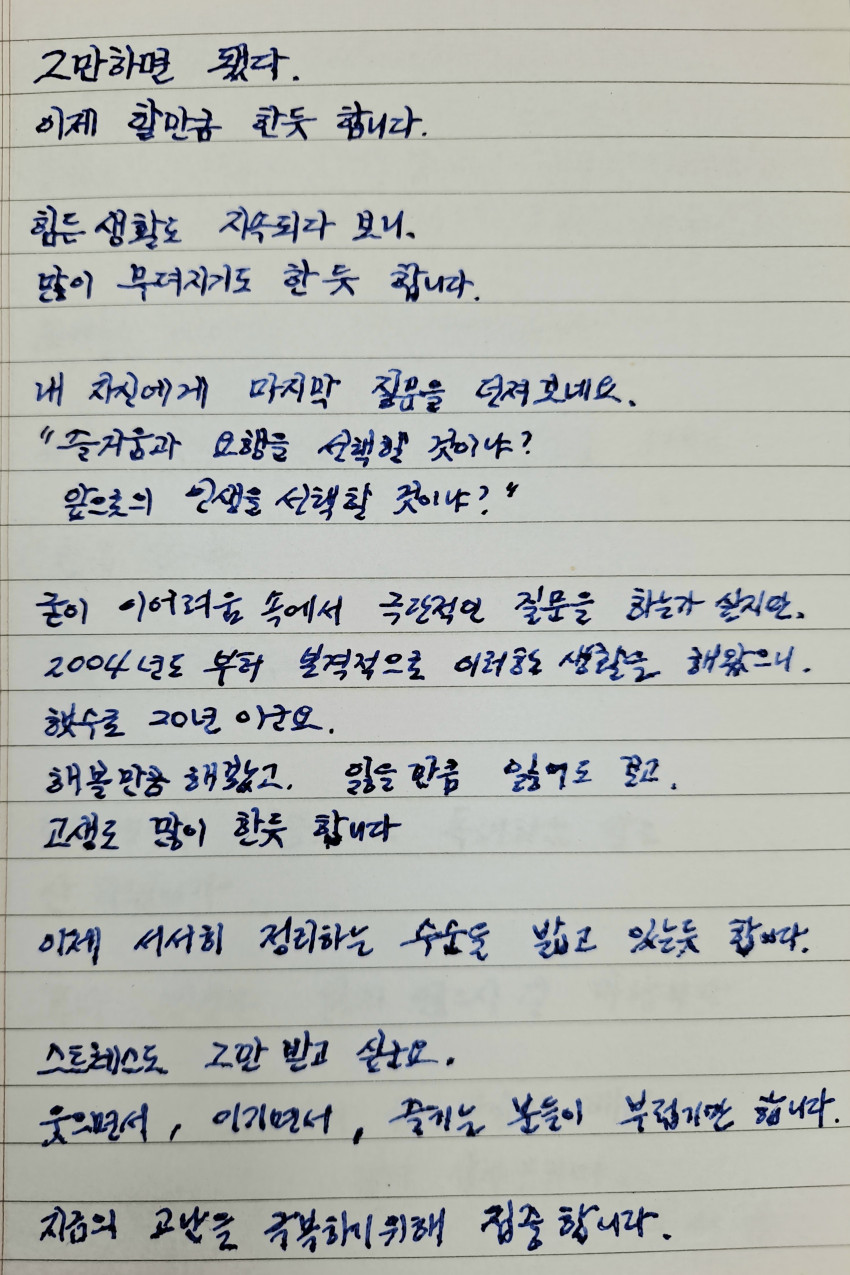 그만하면 됐다.
이제 할만큼 한듯 합니다.
힘든 생활도 지속되다 보니.
많이 무뎌지기도 한 듯 합니다.
내 자신에게 마지막 질문을 던져보네요.
"즐거움과 요행을 선택할 것이냐?
앞으로의 인생을 선택할 것이냐?"
굳이 이어려움 속에서 극단적인 질문을 하는가 싶지만.
2004년도 부터 본격적으로 이러한 생활을 해왔으니.
햇수로 20년 이군요.
해볼만큼 해봤고. 잃을 만큼 잃어도 봤고.
고생도 많이 한듯 합니다
이제 서서히 정리하는 수순을 밟고 있는듯 합니다.
스트레스도 그만 받고 싶군요.
웃으면서, 이기면서, 즐기는 분들이 부럽기만 합니다.
지금의 고난을 극복하기위해 집중합니다.